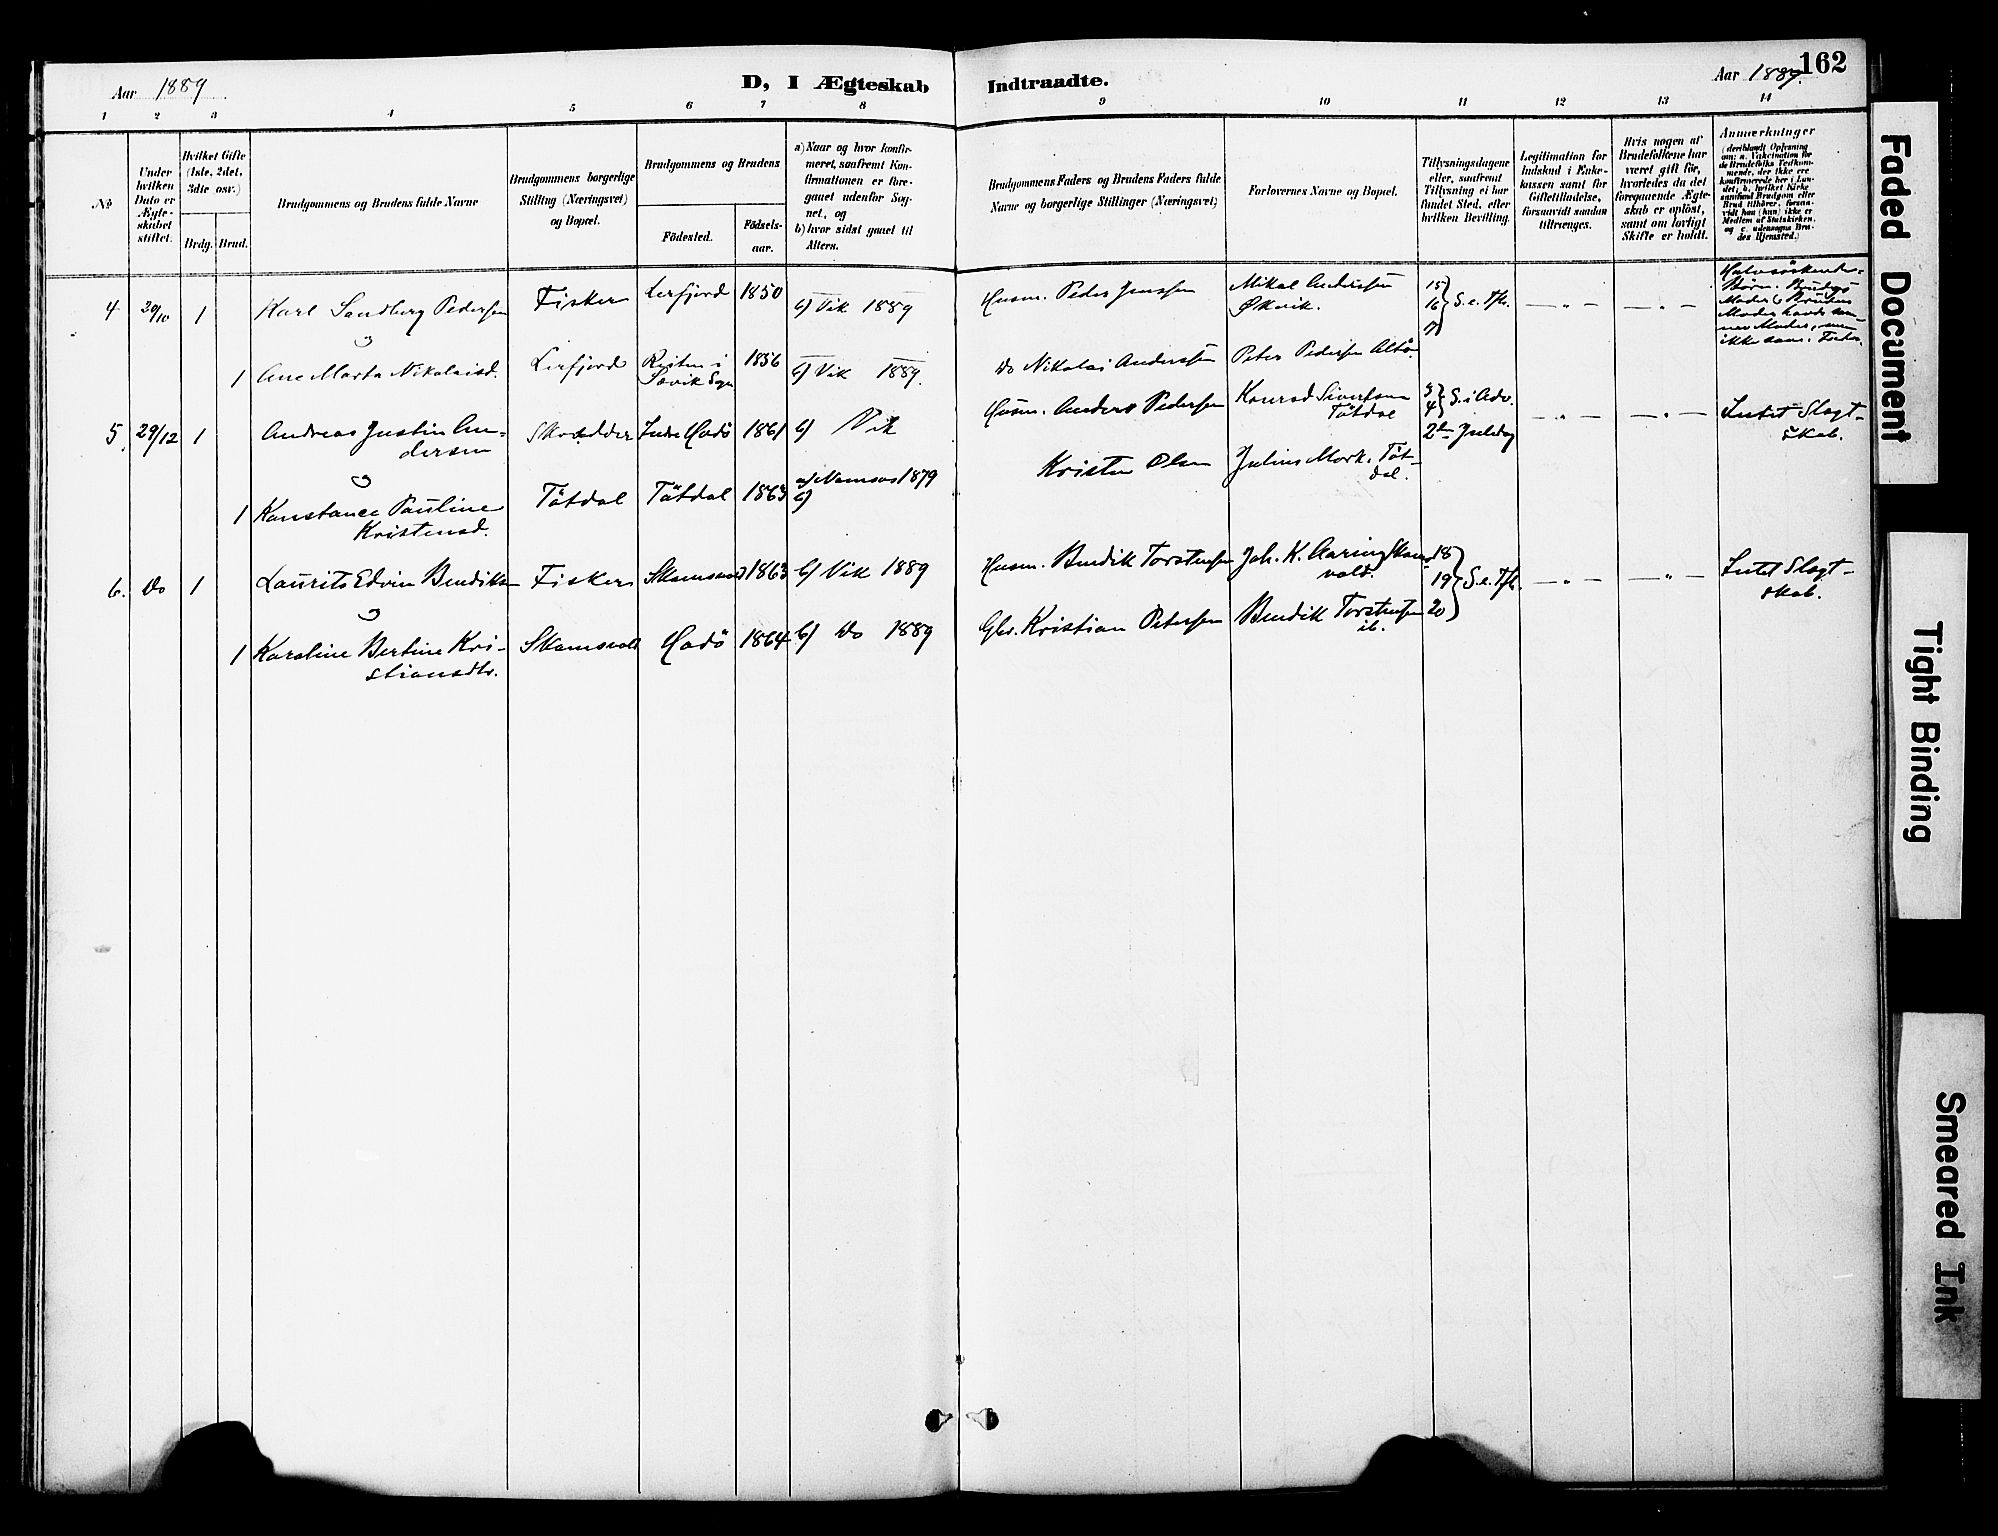 Aar 1889
D, I Ægteskab
Indtraadte.
Aar 1889.
162
1 2 3 4 5 6 7 8 9 10 11 12 13 14
№
Under
hvilken
Dato er
Ægte-
skabet
stiftet.
Hvilket Gifte
(1ste, 2det,
3die osv.)
Brdg.
Brud.
Brudgommens og Brudens fulde Navne
Brudgommens borgerlige
Stilling (Næringsvei)
og Bopæl.
Brudgommens og Brudens
Födested.
Födsels-
aar.
a) Naar og hvor konfir-
meret, saafremt Kon-
firmationen er fore-
gaaet udenfor Sog-
net, og
b) hvor sidst gaaet til
Alters.
Brudgommens Faders og Brudens Faders fulde
Navne og borgerlige Stillinger (Næringsvei)
Forlovernes Navne og Bopæl.
Tillysningsdagene
eller, saafremt
Tillysning ei har
fundet Sted, efter
hvilken Bevilling.
Legitimation for
Indskud i Enke-
kassen samt for
Giftetilladelse,
forsaavidt saadan
tiltrænges.
Hvis nogen af
Brudefolkene har
været gift før,
hvorledes da det
foregaaende Ægte-
skab er oplöst,
samt om lovligt
Skifte er holdt.
Anmærkninger
(deriblandt Oplysning
om: a. Vakcination for
de Brudefolks Vedkom-
mende, der ikke ere
konfirmerede her i Lan-
det; b. hvilket Kirke
samfund Brudgom eller
Brud tilhører, forsaa-
vidt han (hun) ikke er
Medlem af Statskirken,
og c. udensogns Bru-
des Hjemsted.)
4 29/10 1 Karl Sandberg Pedersen Fisker Lerfjord 1850 b) Vik 1889 Husm. Peder Jenssen Mikal Andersen
Økvik.
15
16 } S. e. Tfh.
17
Halvsöskende-
Börn. Brudgs
Moder & Brudens
Moder havde sam-
me Moder, men
ikke sam. Fader.
1 Ane Marta Nikolaisd. Lerfjord Resten i
Søvik Sogn 1856 b) Vik 1889. Do Nikolai Anderssen Peter Pedersen Altö
5. 29/12 1 Andreas Justin An-
dersen Skrædder Indre Hadö 1861 b) Vik Husm. Anders Pedersen Konrad Sivertsen
Tötdal
3
4 } S. i Adv.
2den Juledag
Intet Slægt-
skab.
1 Konstance Pauline
Kristensd. Tötdal Tötdal 1863 a) Namsos 1879
b) Kristen Olsen Julius Mork. Töt-
dal.
6. Do 1 Laurits Edvin Bendiksen Fisker Skomsvold 1863 b) Vik 1889 Husm. Bendik Torstensen Joh. K. Aaring Skoms-
vold.
18
19 } S. e. Tfh.
20
Intet Slægt-
skab.
1 Karoline Bertine Kri-
stiansdtr. Skomsvold Hadö 1864 b) Do 1889 Gbr. Kristian Petersen Bendik Torstensen
ib.
Faded Document
Tight Binding
Smeared Ink